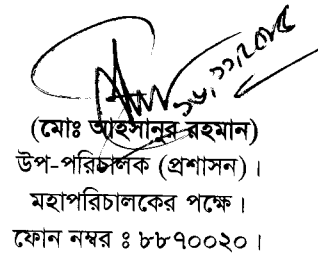 ১৬.১১.২০১৫
(মোঃ আহসানুর রহমান)
উপ-পরিচালক (প্রশাসন) ।
মহাপরিচালকের পক্ষে ।
ফোন নম্বর ঃ ৮৮৭০০২০ ।